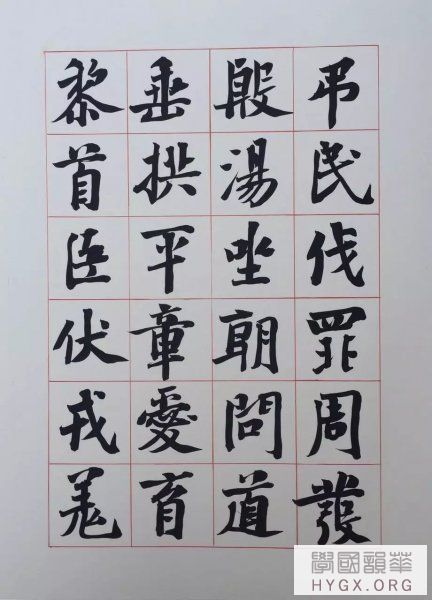 弔民伐罪周發
殷湯坐朝問道
垂拱平章愛育
黎首臣伏戎羌
學國韻華
HYGX.ORG